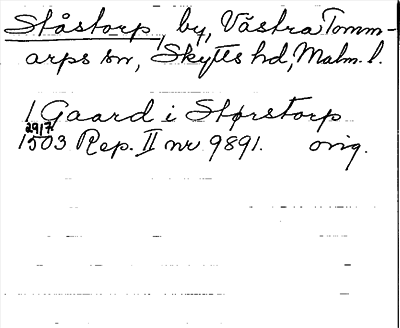 Ståstorp, by, Västra Tomm-
arps sn, Skytts hd, Malm. l.
1 Gaard i Størstorp
29/7
1503 Rep. II nr 9891. orig.